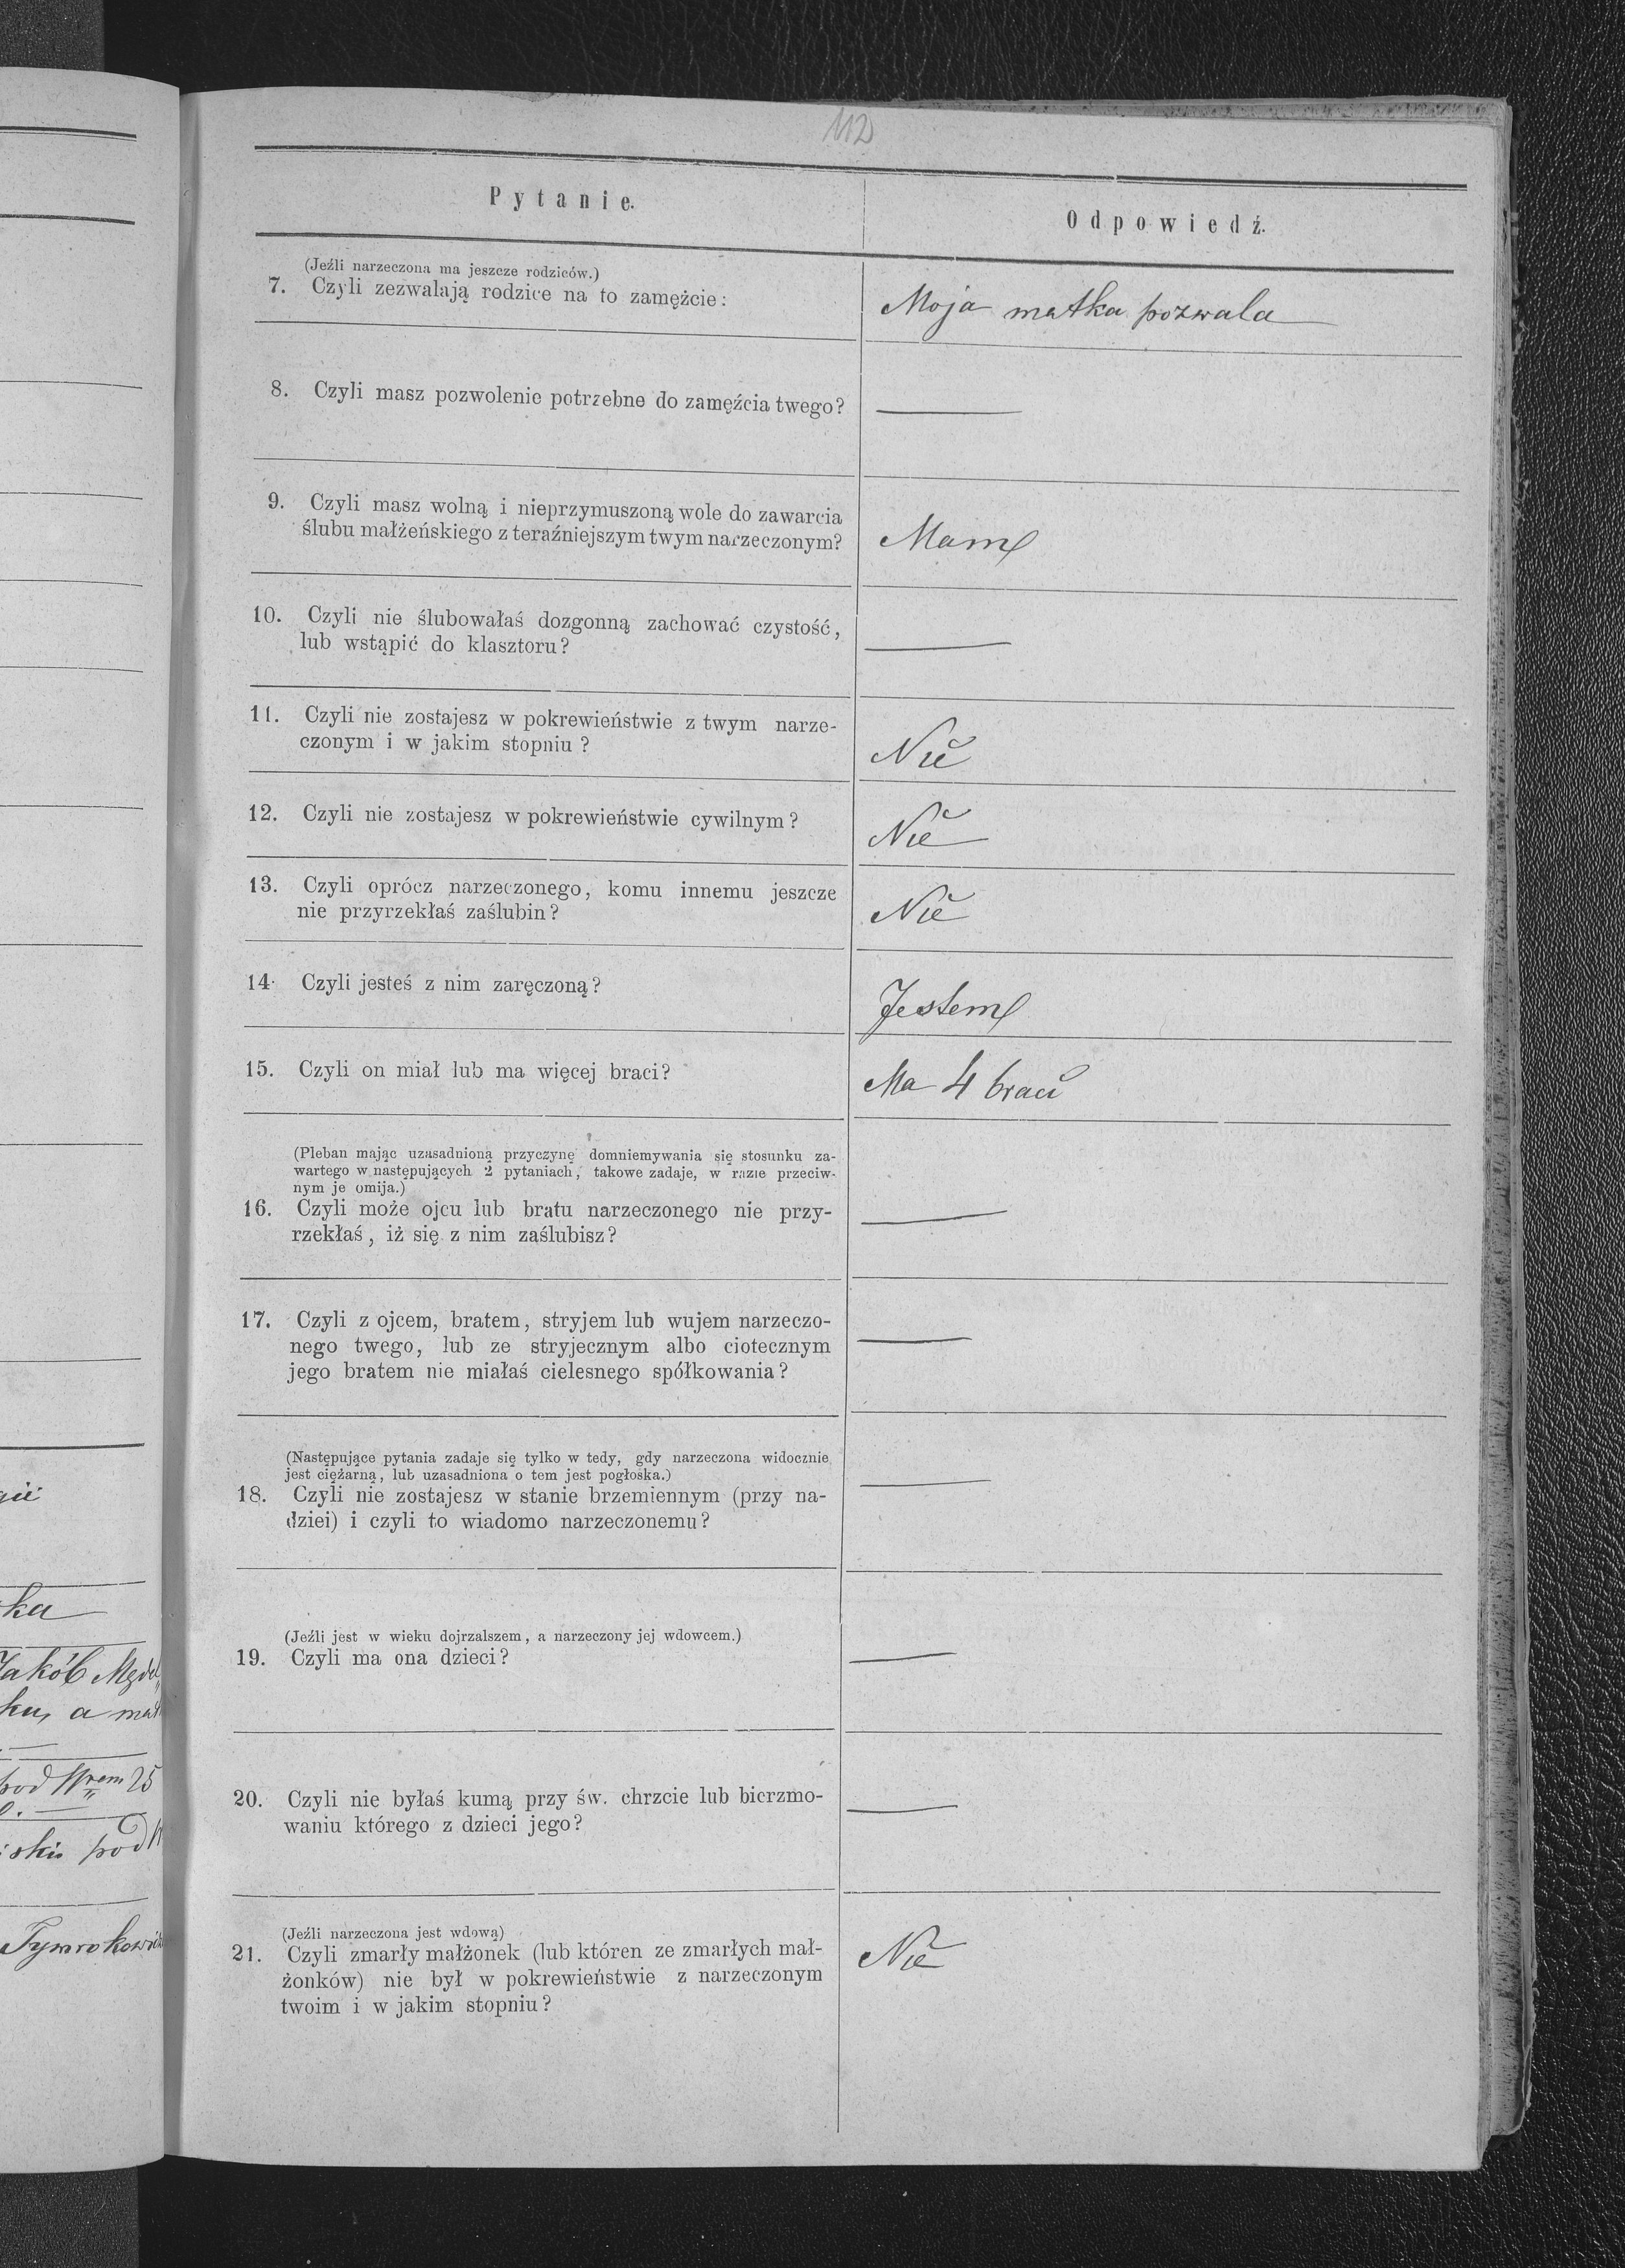 112
Pytanie.
Odpowiedź.
(Jeźli narzeczona ma jeszcze rodziców.)
7. Czyli zezwalają rodzice na to zamężcie:
Moja matka pozwala
8. Czyli masz pozwolenie potrzebne do zamęźcia twego?
—
9. Czyli masz wolną i nieprzymuszoną wole do zawarcia
ślubu małżeńskiego z teraźniejszym twym narzeczonym?
Mam
10. Czyli nie ślubowałaś dozgonną zachować czystość,
lub wstąpić do klasztoru?
—
11. Czyli nie zostajesz w pokrewieństwie z twym narze-
czonym i w jakim stopniu?
Nie
12. Czyli nie zostajesz w pokrewieństwie cywilnym?
Nie
13. Czyli oprócz narzeczonego, komu innemu jeszcze
nie przyrzekłaś zaślubin?
Nie
14. Czyli jesteś z nim zaręczoną?
Jestem
15. Czyli on miał lub ma więcej braci?
Ma 4 braci
(Pleban mając uzasadnioną przyczynę domniemywania się stosunku za-
wartego w następujących 2 pytaniach, takowe zadaje, w razie przeciw-
nym je omija.)
16. Czyli może ojcu lub bratu narzeczonego nie przy-
rzekłaś, iż się z nim zaślubisz?
—
17. Czyli z ojcem, bratem, stryjem lub wujem narzeczo-
nego twego, lub ze stryjecznym albo ciotecznym
jego bratem nie miałaś cielesnego spółkowania?
—
(Następujące pytania zadaje się tylko w tedy, gdy narzeczona widocznie
jest ciężarną, lub uzasadniona o tem jest pogłoska.)
18. Czyli nie zostajesz w stanie brzemiennym (przy na-
dziei) i czyli to wiadomo narzeczonemu?
—
(Jeźli jest w wieku dojrzalszem, a narzeczony jej wdowcem.)
19. Czyli ma ona dzieci?
—
20. Czyli nie byłaś kumą przy św. chrzcie lub bierzmo-
waniu którego z dzieci jego?
—
(Jeźli narzeczona jest wdową)
21. Czyli zmarły małżonek (lub któren ze zmarłych mał-
żonków) nie był w pokrewieństwie z narzeczonym
twoim i w jakim stopniu?
Nie
ka
Jakób
a
pod 25
pod